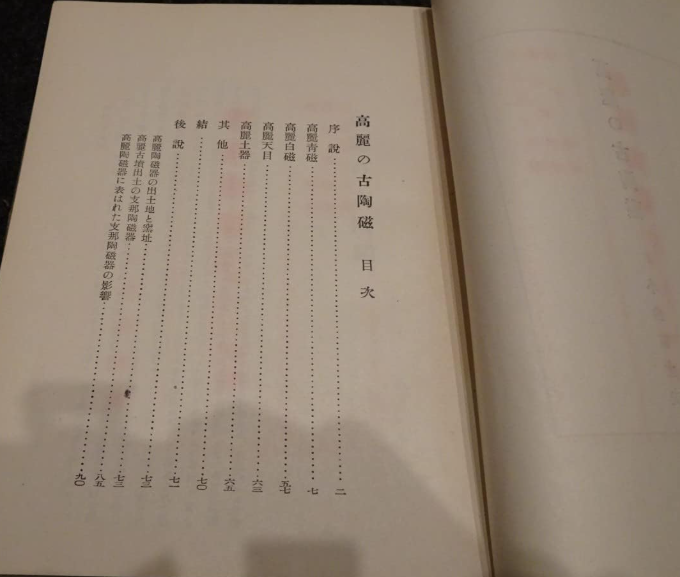 高麗の古陶磁 目次
序說 二
高麗青磁 七
高麗白磁 五七
高麗天目 六三
高麗土器 六五
其他 七〇
結 七一
後說 七三
高麗陶磁器の出土地と窯址 七三
高麗古墳出土の支那陶磁器 八五
高麗陶磁器に表はれた支那陶磁器の影響 九〇